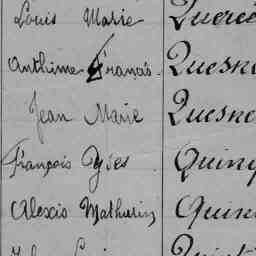 Louis Marie Querée
Anthime Francis Quesne
Jean Marie Quesne
François Yves Quiny
Alexis Mathurin Quin